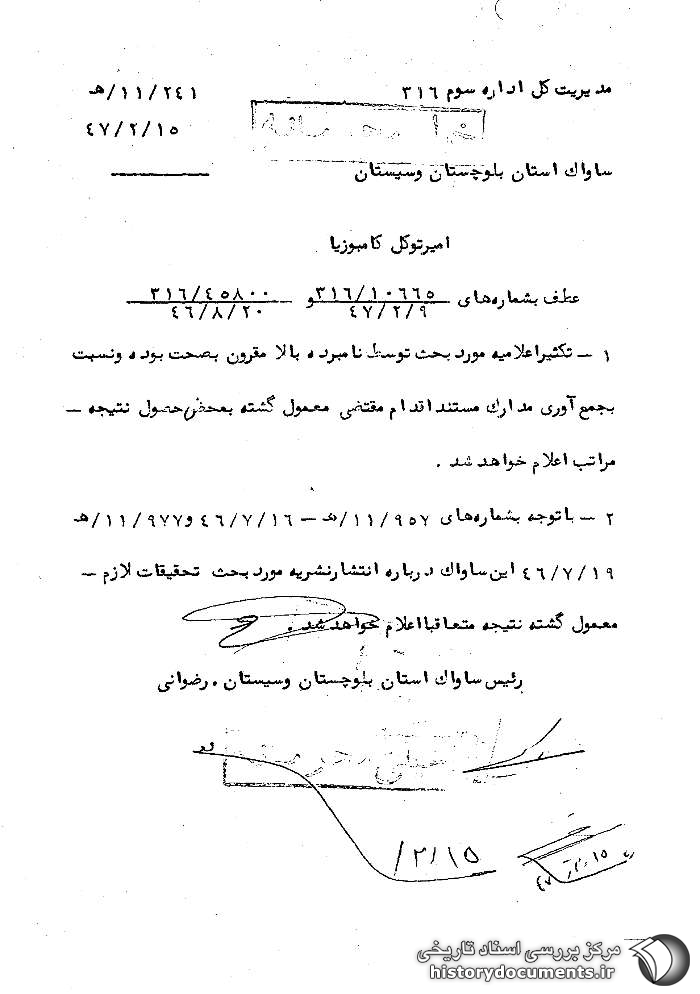 مدیریت کل اداره سوم ۳۱۶
۱۱/۲۴۱/هـ
۴۷/۲/۱۵
ساواک استان بلوچستان وسیستان
امیرتوکل کامبوزیا
عطف بشماره‌های ۳۱۶/۱۰۶۶۵ و ۳۱۶/۴۵۸۰۰
۴۷/۲/۹ ۴۶/۸/۲۰
۱ – تکثیراعلامیه مورد بحث توسط نامبرده بالا مقرون بصحت بوده ونسبت
بجمع آوری مدارک مستند اقدام مقتضی معمول گشته بمحض حصول نتیجه –
مراتب اعلام خواهد شد .
۲ – با توجه بشماره‌های ۱۱/۹۵۷/هـ – ۴۶/۷/۱۶ و ۱۱/۹۷۷/هـ
۴۶/۷/۱۹ این ساواک درباره انتشارنشریه مورد بحث تحقیقات لازم –
معمول گشته نتیجه متعاقبا اعلام خواهد شد .
رئیس ساواک استان بلوچستان وسیستان . رضوانی
خیلی محرمانه
۲/۱۵/
۴۷/۲/۱۵
مرکز بررسی اسناد تاریخی
historydocuments.ir